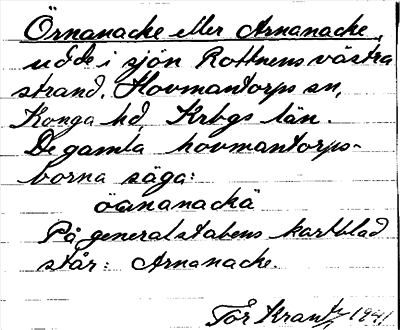 Örnanacke eller Arnanacke,
udde i sjön Rottnens västra
strand, Hovmantorps sn,
Konga hd, Krbgs län.
De gamla hovmantorps-
borna säga:
På generalstabens kartblad
står: Arnanacke.
Tor Krantz 1941